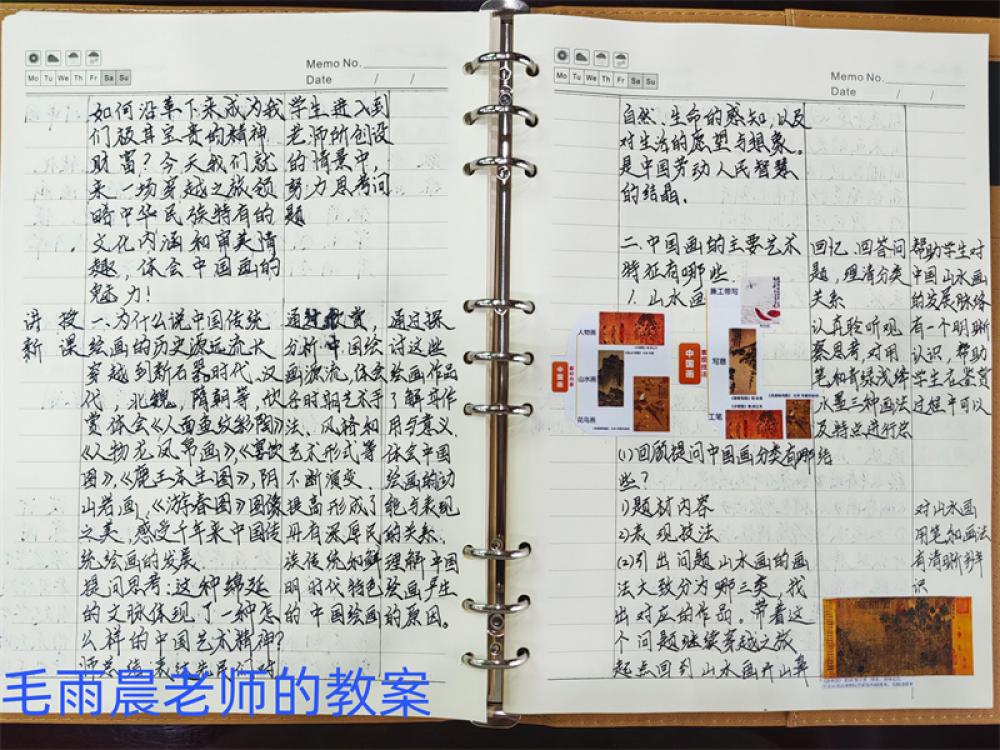 Mo Tu We Th Fr Sa Su
Memo No.
Date / /
如何沿革下来成为我
们极其宝贵的精神
财富？今天我们就
来一场穿越之旅领
略中华民族特有的
文化内涵和审美情
趣，体会中国画的
魅力！
学生进入到
老师所创设
的情景中，
努力思考问
题
讲授
新课
一.为什么说中国传统
绘画的历史源远流长
穿越到新石器时代、汉
代，北魏，隋朝等，欣
赏体会《人面鱼纹彩陶》
《人物龙凤帛画》《宴饮
图》，《鹿王本生图》，阴
山岩画，《游春图》图像
之美，感受千年来中国传
统绘画的发展.
提问思考：这种绵延
的文脉体现了一种怎
么样的中国艺术精神？
通过欣赏，
分析，中国绘
画源流，体会
各时期艺术手
法、风格和
艺术形式等
不断演变.
提高形成了
具有深厚民
族传统和鲜
明时代特色
的中国绘画
通过探
讨这些
绘画作品
了解其作
用与意义.
体会中国
绘画的功
能与表现
的关系.
理解中国
绘画产生
的原因。
Mo Tu We Th Fr Sa Su
Memo No.
Date / /
自然、生命的感知，以及
对生活的愿望与想象。
是中国劳动人民智慧
的结晶.
二.中国画的主要艺术
特征有哪些.
1.山水画
人物画
山水画
花鸟画
中国画
中国画
兼工带写
写意
工笔
(1)回顾提问中国画分类有哪
些？
1)题材内容
2)表现技法
(2)引出问题山水画的画
法大致分为哪三类，找
出对应的作品。带着这
个问题继续穿越之旅
起点回到山水画开山
回忆.回答问
题，理清分类
关系
认真聆听观
察思考，对用
笔和青绿浅绛
水墨三种画法
及特点进行总
结
帮助学生对
中国山水画
的发展脉络
有一个明晰
认识，帮助
学生在鉴赏
过程中可以
对山水画
用笔和画法
有清晰的辨
识
毛雨晨老师的教案